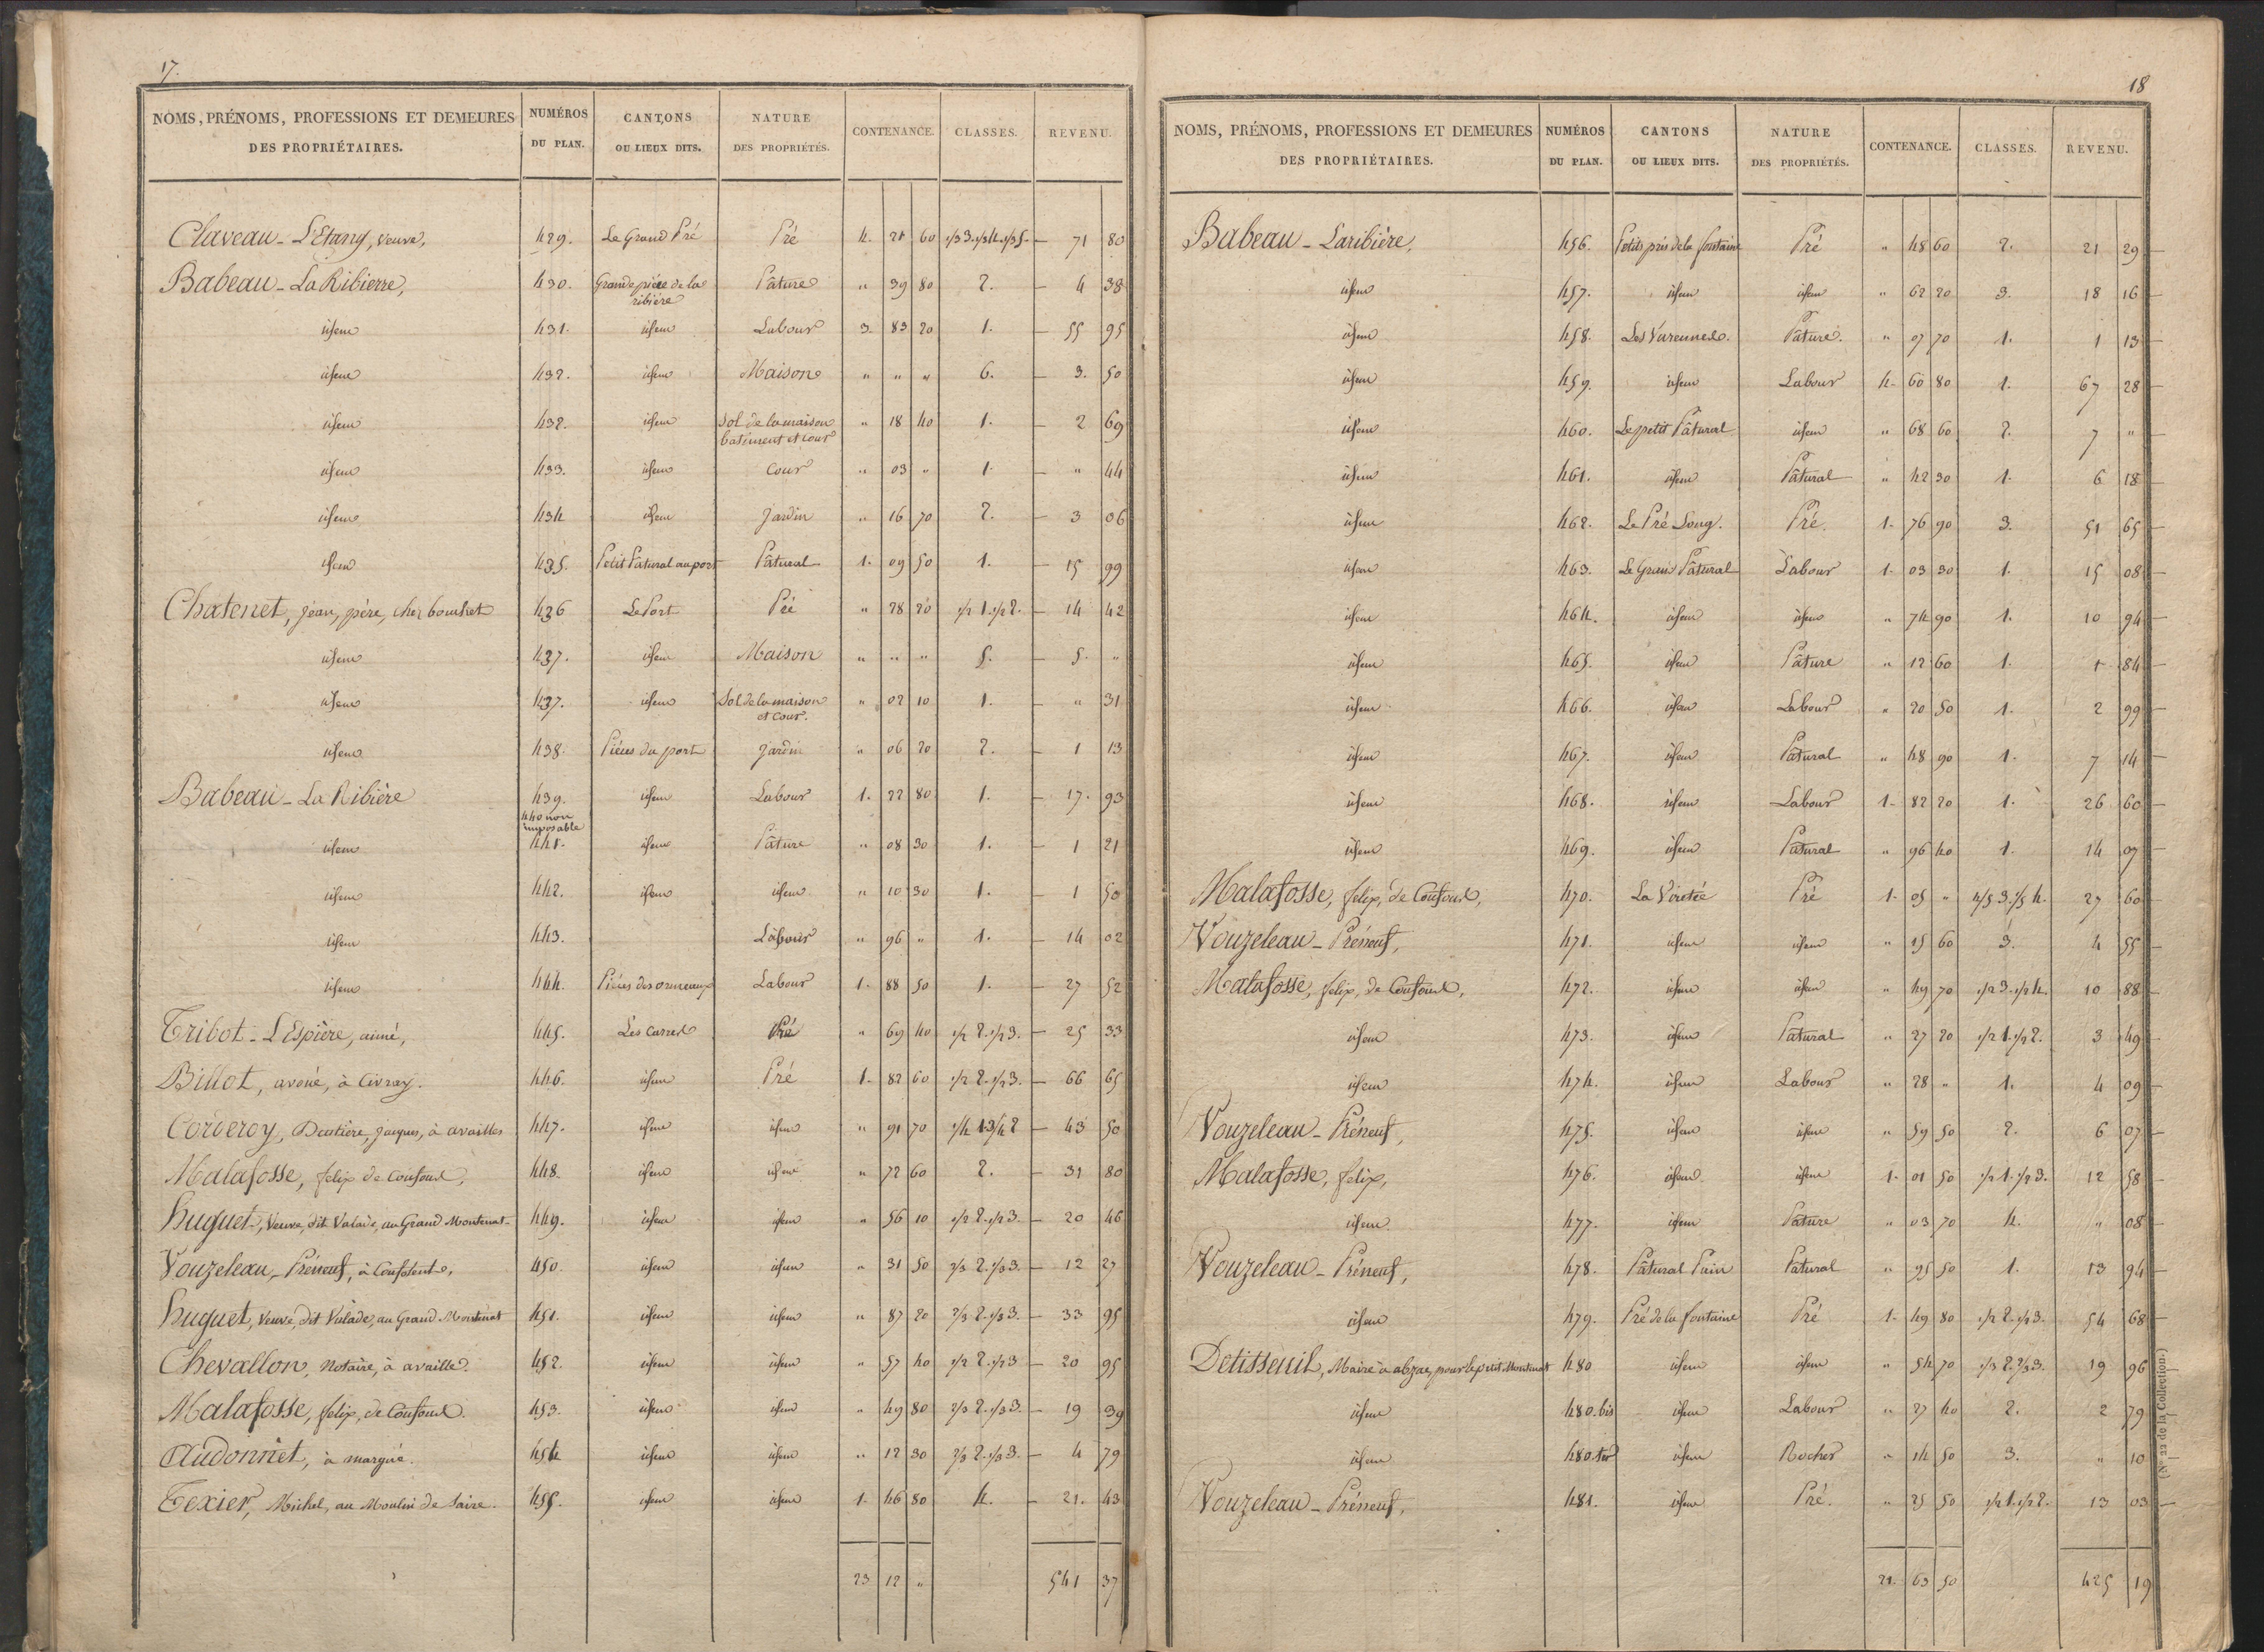 17.
NOMS, PRÉNOMS, PROFESSIONS ET DEMEURES DES PROPRIÉTAIRES. NUMÉROS DU PLAN. CANTONS OU LIEUX DITS. NATURE DES PROPRIÉTÉS. CONTENANCE. CLASSES. REVENU.
Claveau - L'Etang, veuve, 429. Le Grand Pré Pré 4. 21 60 1/3 3. 1/3 4. 1/3 5. — 71 80
Babeau - La Ribierre, 430. Grande pièce de la ribière Pâture " 39 80 2. — 4 38
idem 431. idem Labour 3. 83 20 1. — 55 95
idem 432. idem Maison " " " 6. — 3. 50
idem 432. idem Sol de la maison batiment et cour " 18 40 1. — 2 69
idem 433. idem Cour " 03 " 1. — " 44
idem 434 idem Jardin " 16 70 2. — 3 06
idem 435. Petit Pâtural au port Pâtural 1. 09 50 1. — 15 99
Chatenet, jean, père, chez bouchet 436 Le Port Pré " 28 20 1/2 1. 1/2 2. — 14 42
idem 437. idem Maison " " " 5. — 5. "
idem 437. idem Sol de la maison et cour. " 02 10 1. — " 31
idem 438. Pièces du port Jardin " 06 20 2. — 1 13
Babeau - La Ribière 439. idem Labour 1. 22 80 1. — 17. 93
440 non imposable
idem 441. idem Pâture " 08 30 1. — 1 21
idem 442. idem idem " 10 30 1. — 1 50
idem 443. Labour " 96 " 1. — 14 02
idem 444. Pièces des ormeaux Labour 1. 88 50 1. — 27 52
Tribot - L'Espière, aimé, 445. Les Carres Pré " 69 40 1/2 2. 1/2 3. — 25 33
Billot, avoué, à Civray. 446. idem Pré 1. 82 60 1/2 2. 1/2 3. — 66 65
Corderoy, jacques, à availles 447. idem idem " 91 70 1/4 1. 3/4 2 — 43 50
Malafosse, felix de 448. idem idem " 72 60 2. — 31 80
Huguet, Veuve, dit Valade, au Grand Montenat 449. idem idem " 56 10 1/2 2. 1/2 3. — 20 46
Vouzeleau - Préneuf, à Confolent, 450. idem idem " 31 50 2/3 2. 1/3 3. — 12 27
Huguet, Veuve, dit Valade, au Grand Montenat 451. idem idem " 87 20 2/3 2. 1/3 3. — 33 95
Chevallon, Notaire, à availle. 452. idem idem " 57 40 1/2 2. 1/2 3 — 20 95
Malafosse, felix, de 453. idem idem " 49 80 2/3 2. 1/3 3. — 19 39
Audonnet, à 454 idem idem " 12 30 2/3 2. 1/3 3. — 4 79
Texier, Michel, au Moulin de Saire. 455. idem idem 1. 46 80 4. — 21. 43
23 12 " 541 37
18
NOMS, PRÉNOMS, PROFESSIONS ET DEMEURES DES PROPRIÉTAIRES. NUMÉROS DU PLAN. CANTONS OU LIEUX DITS. NATURE DES PROPRIÉTÉS. CONTENANCE. CLASSES. REVENU.
Babeau - Laribière, 456. Petits prés de la fontaine Pré " 48 60 2. 21 29
idem 457. idem idem " 62 20 3. 18 16
idem 458. Les Varennes. Pâture. " 07 70 1. 1 13
idem 459. idem Labour 4. 60 80 1. 67 28
idem 460. Le petit Pâtural idem " 68 60 2. 7 "
idem 461. idem Pâtural " 42 30 1. 6 18
idem 462. Le Pré Long. Pré. 1. 76 90 3. 51 65
idem 463. Le Grand Pâtural Labour 1. 03 30 1. 15 08
idem 464. idem idem " 74 90 1. 10 94
idem 465. idem Pâture " 12 60 1. 1 84
idem 466. idem Labour " 20 50 1. 2 99
idem 467. idem Patural " 48 90 1. 7 14
idem 468. idem Labour 1. 82 20 1. 26 60
idem 469. idem Patural " 96 40 1. 14 07
Malafosse, felix, de 470. La Viretée Pré 1. 05 " 4/5 3. 1/5 4. 27 60
Vouzeleau - Préneuf, 471. idem idem " 15 60 3. 4 55
Malafosse, felix, de 472. idem idem " 49 70 1/2 3. 1/2 4. 10 88
idem 473. idem Patural " 27 20 1/2 1. 1/2 2. 3 49
idem 474. idem Labour " 28 " 1. 4 09
Vouzeleau - Préneuf, 475. idem idem " 59 50 2. 6 07
Malafosse, felix, 476. idem idem 1. 01 50 1/2 1. 1/2 3. 12 58
idem 477. idem Pature " 03 70 4. " 08
Vouzeleau - Préneuf, 478. Pâtural Patural " 95 50 1. 13 94
idem 479. Pré de la fontaine Pré 1. 49 80 1/2 2. 1/2 3. 54 68
Detisseuil, Maire à abzac, pour le petit Montenat 480 idem idem " 54 70 1/3 2. 2/3 3. 19 96
idem 480.bis idem Labour " 27 40 2. 2 79
idem 480.ter idem Rocher " 14 50 3. " 10
Vouzeleau - Préneuf, 481. idem Pré. " 25 50 1/2 1. 1/2 2. 13 03
21. 63 50 425 19
(N° 22 de la Collection.)